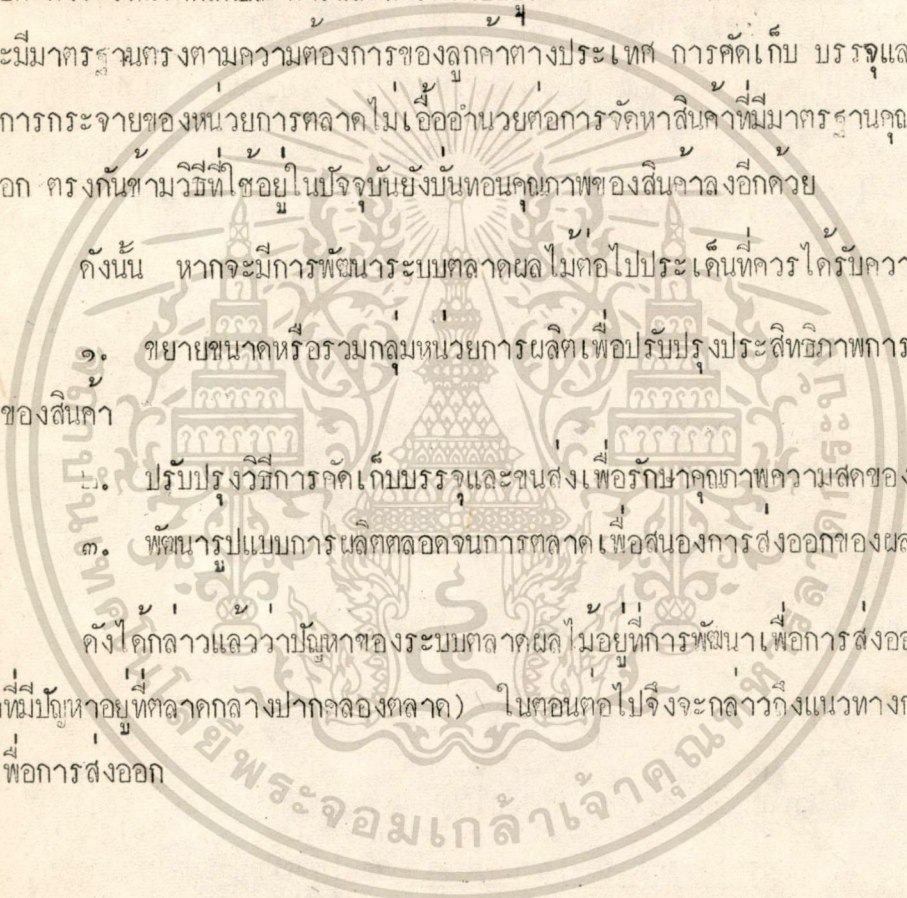 ะมีมาตรฐานตรงตามความต้องการของลูกค้าต่างประเทศ การคัดเก็บ บรรจุแล
การกระจายของหน่วยการตลาดไม่เอื้ออำนวยต่อการจัดหาสินค้าที่มีมาตรฐานคุณ
อก ตรงกันข้ามวิธีที่ใช้อยู่ในปัจจุบันยังบั่นทอนคุณภาพของสินค้าลงอีกด้วย
ดังนั้น หากจะมีการพัฒนาระบบตลาดผลไม้ต่อไปประเด็นที่ควรได้รับควา
๑. ขยายขนาดหรือรวมกลุ่มหน่วยการผลิตเพื่อปรับปรุงประสิทธิภาพการ
ของสินค้า
๒. ปรับปรุงวิธีการคัดเก็บบรรจุและขนส่งเพื่อรักษาคุณภาพความสดของ
๓. พัฒนารูปแบบการผลิตตลอดจนการตลาดเพื่อสนองการส่งออกของผล
ดังได้กล่าวแล้วว่าปัญหาของระบบตลาดผลไม้อยู่ที่การพัฒนาเพื่อการส่งออ
ที่มีปัญหาอยู่ที่ตลาดกลางปากคลองตลาด) ในตอนต่อไปจึงจะกล่าวถึงแนวทางก
พื่อการส่งออก
สถาบันเทคโนโลยีพระจอมเกล้าเจ้าคุณทหารลาดกระบัง